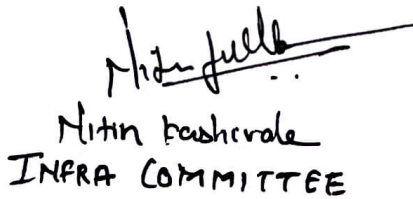 Nitin
Nitin Kashivale
INFRA COMMITTEE